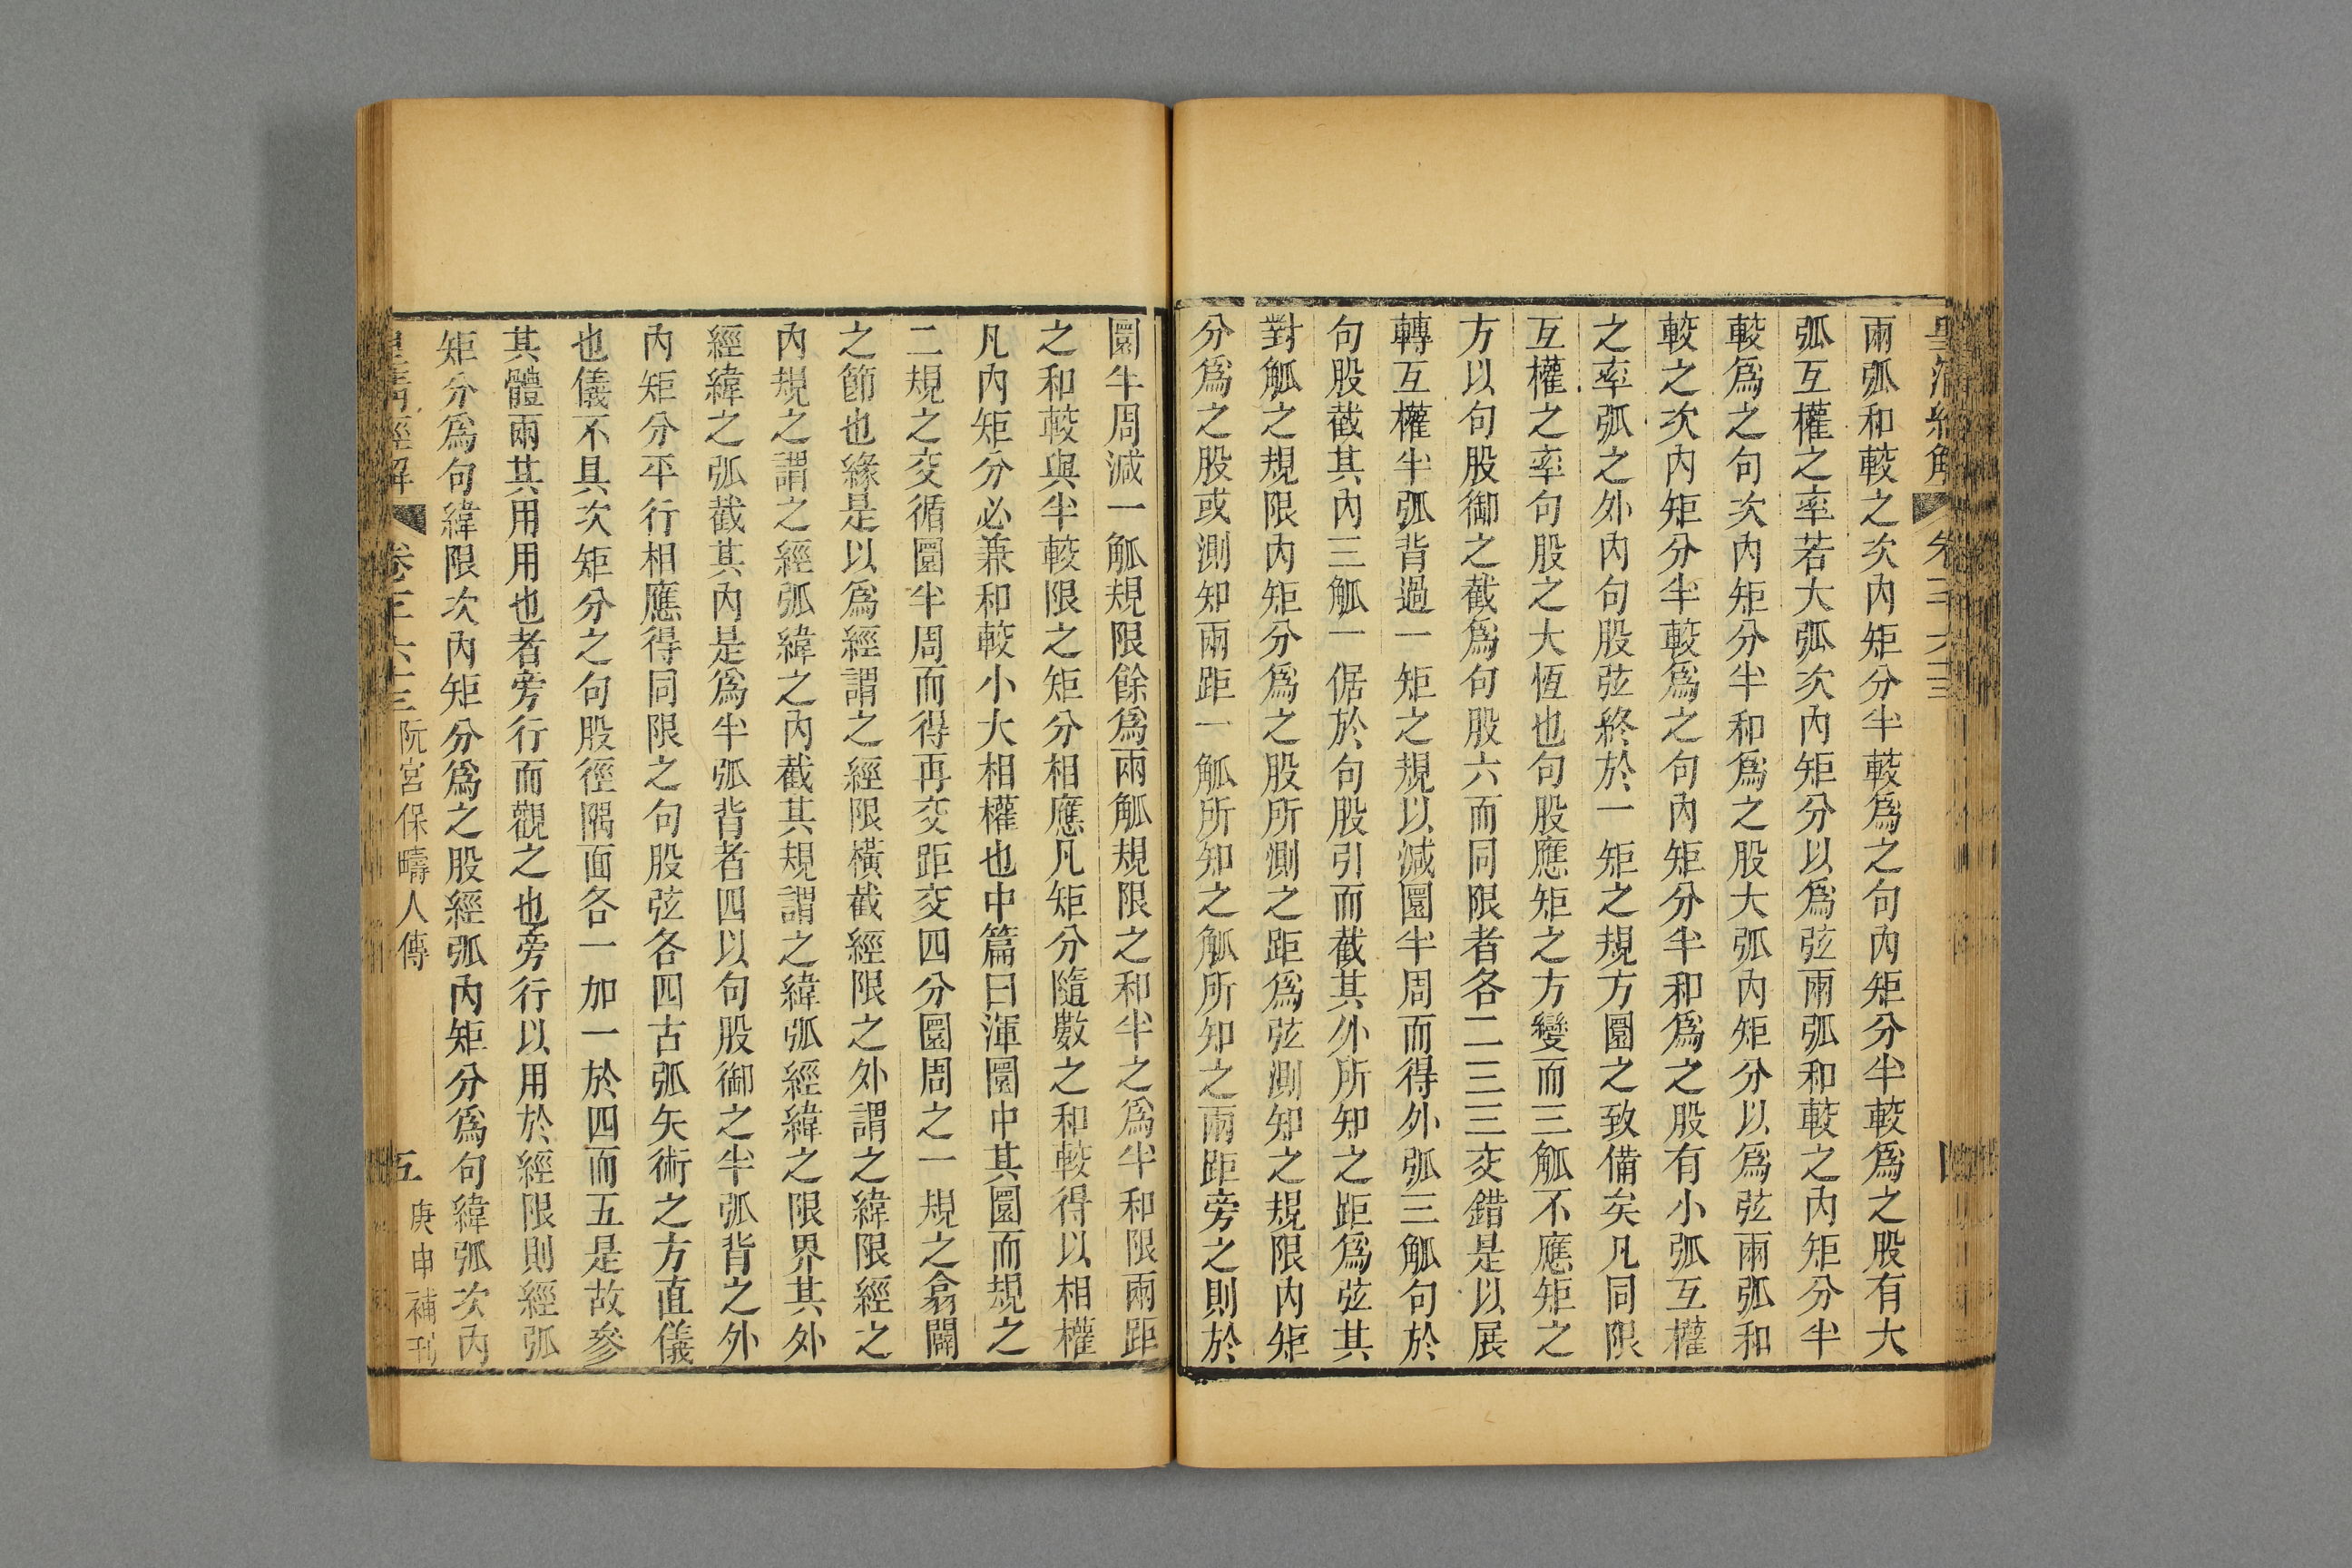 兩弧和較之次內矩分半較爲之句內矩分半較爲之股有大
弧互權之率若大弧次內矩分以爲弦兩弧和較之內矩分半
較爲之句次內矩分半和爲之股大弧內矩分以爲弦兩弧和
較之次內矩分半較爲之句內矩分半和爲之股有小弧互權
之率弧之外內句股弦終於一矩之規方圜之致備矣凡同限
互權之率句股之大恆也句股應矩之方變而三觚不應矩之
方以句股御之截爲句股六而同限者各二三三交錯是以展
轉互權半弧背過一矩之規以減圜半周而得外弧三觚句於
句股截其內三觚一倨於句股引而截其外所知之距爲弦其
對觚之規限內矩分爲之股所測之距爲弦測知之規限內矩
分爲之股或測知兩距一觚所知之觚所知之兩距旁之則於
圜半周減一觚規限餘爲兩觚規限之和半之爲半和限兩距
之和較與半較限之矩分相應凡矩分隨數之和較得以相權
凡內矩分必兼和較小大相權也中篇曰渾圜中其圜而規之
二規之交循圜半周而得再交距交四分圜周之一規之翕闢
之節也緣是以爲經謂之經限橫截經限之外謂之緯限經之
內規之謂之經弧緯之內截其規謂之緯弧經緯之限界其外
經緯之弧截其內是爲半弧背者四以句股御之半弧背之外
內矩分平行相應得同限之句股弦各四古弧矢術之方直儀
也儀不具次矩分之句股徑隅面各一加一於四而五是故參
其體兩其用用也者旁行而觀之也旁行以用於經限則經弧
矩分爲句緯限次內矩分爲之股經弧內矩分爲句緯弧次內
皇清經解
卷三六三
阮宮保疇人傳
五
庚申補刊